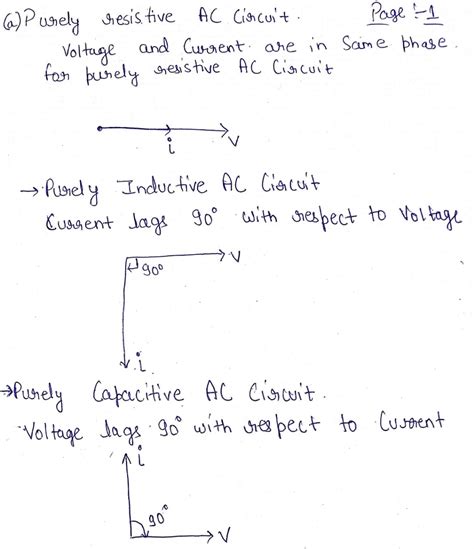 (a) Purely resistive AC Circuit. Page :- 1
Voltage and Current are in Same phase.
for purely resistive AC Circuit
i
V
→ Purely Inductive AC Circuit
Current lags 90° with respect to Voltage
V
90°
i
→ Purely Capacitive AC Circuit.
Voltage lags 90° with respect to Current
i
90°
V